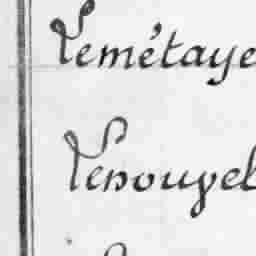 Lemétaye
Lenouvel